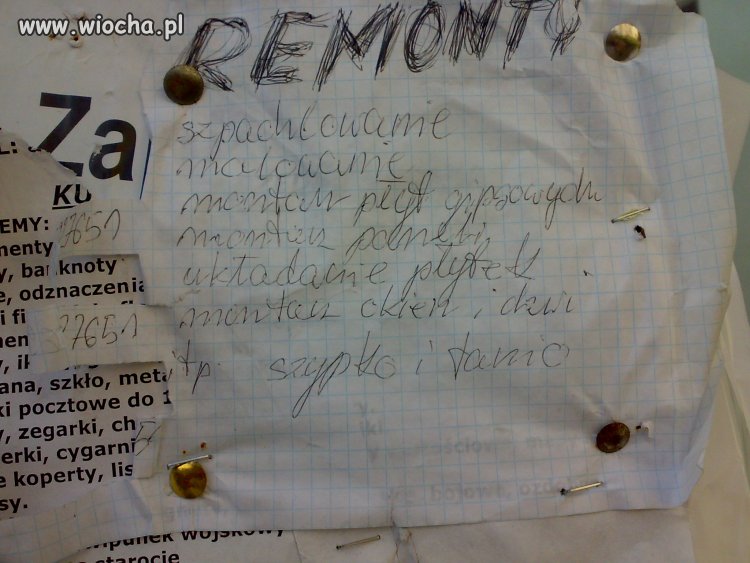 www.wiocha.pl
REMONTY
szpachlowanie
malowanie
montaż płyt gipsowych
montaż paneli
układanie płytek
montaż okien i dzwi
itp. szypko i tanio
Za
KU
EMY:
menty
37651
y, banknoty
e, odznaczenia
i fi
37651
men
ana, szkło, meta
ki pocztowe do 1
y, zegarki, ch
erki, cygarni
e koperty, lis
sy.
wojskowy
starocie